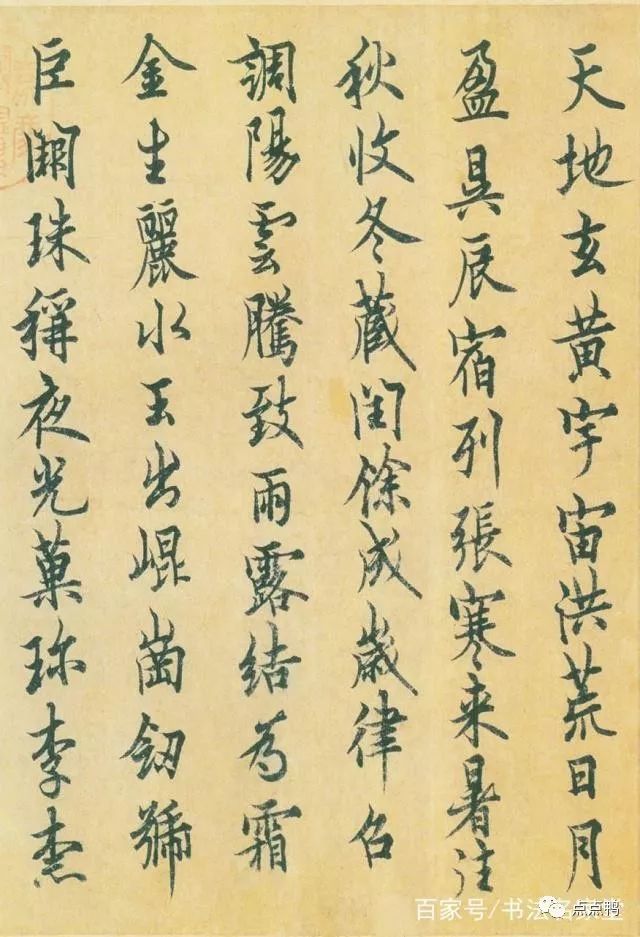 天地玄黃宇宙洪荒日月
盈昃辰宿列張寒来暑往
秋收冬藏閏餘成歲律召
調陽雲騰致雨露結為霜
金生麗水玉出崐崗劒號
巨闕珠稱夜光菓珎李柰
百家号/书法名家堂
点点鸭